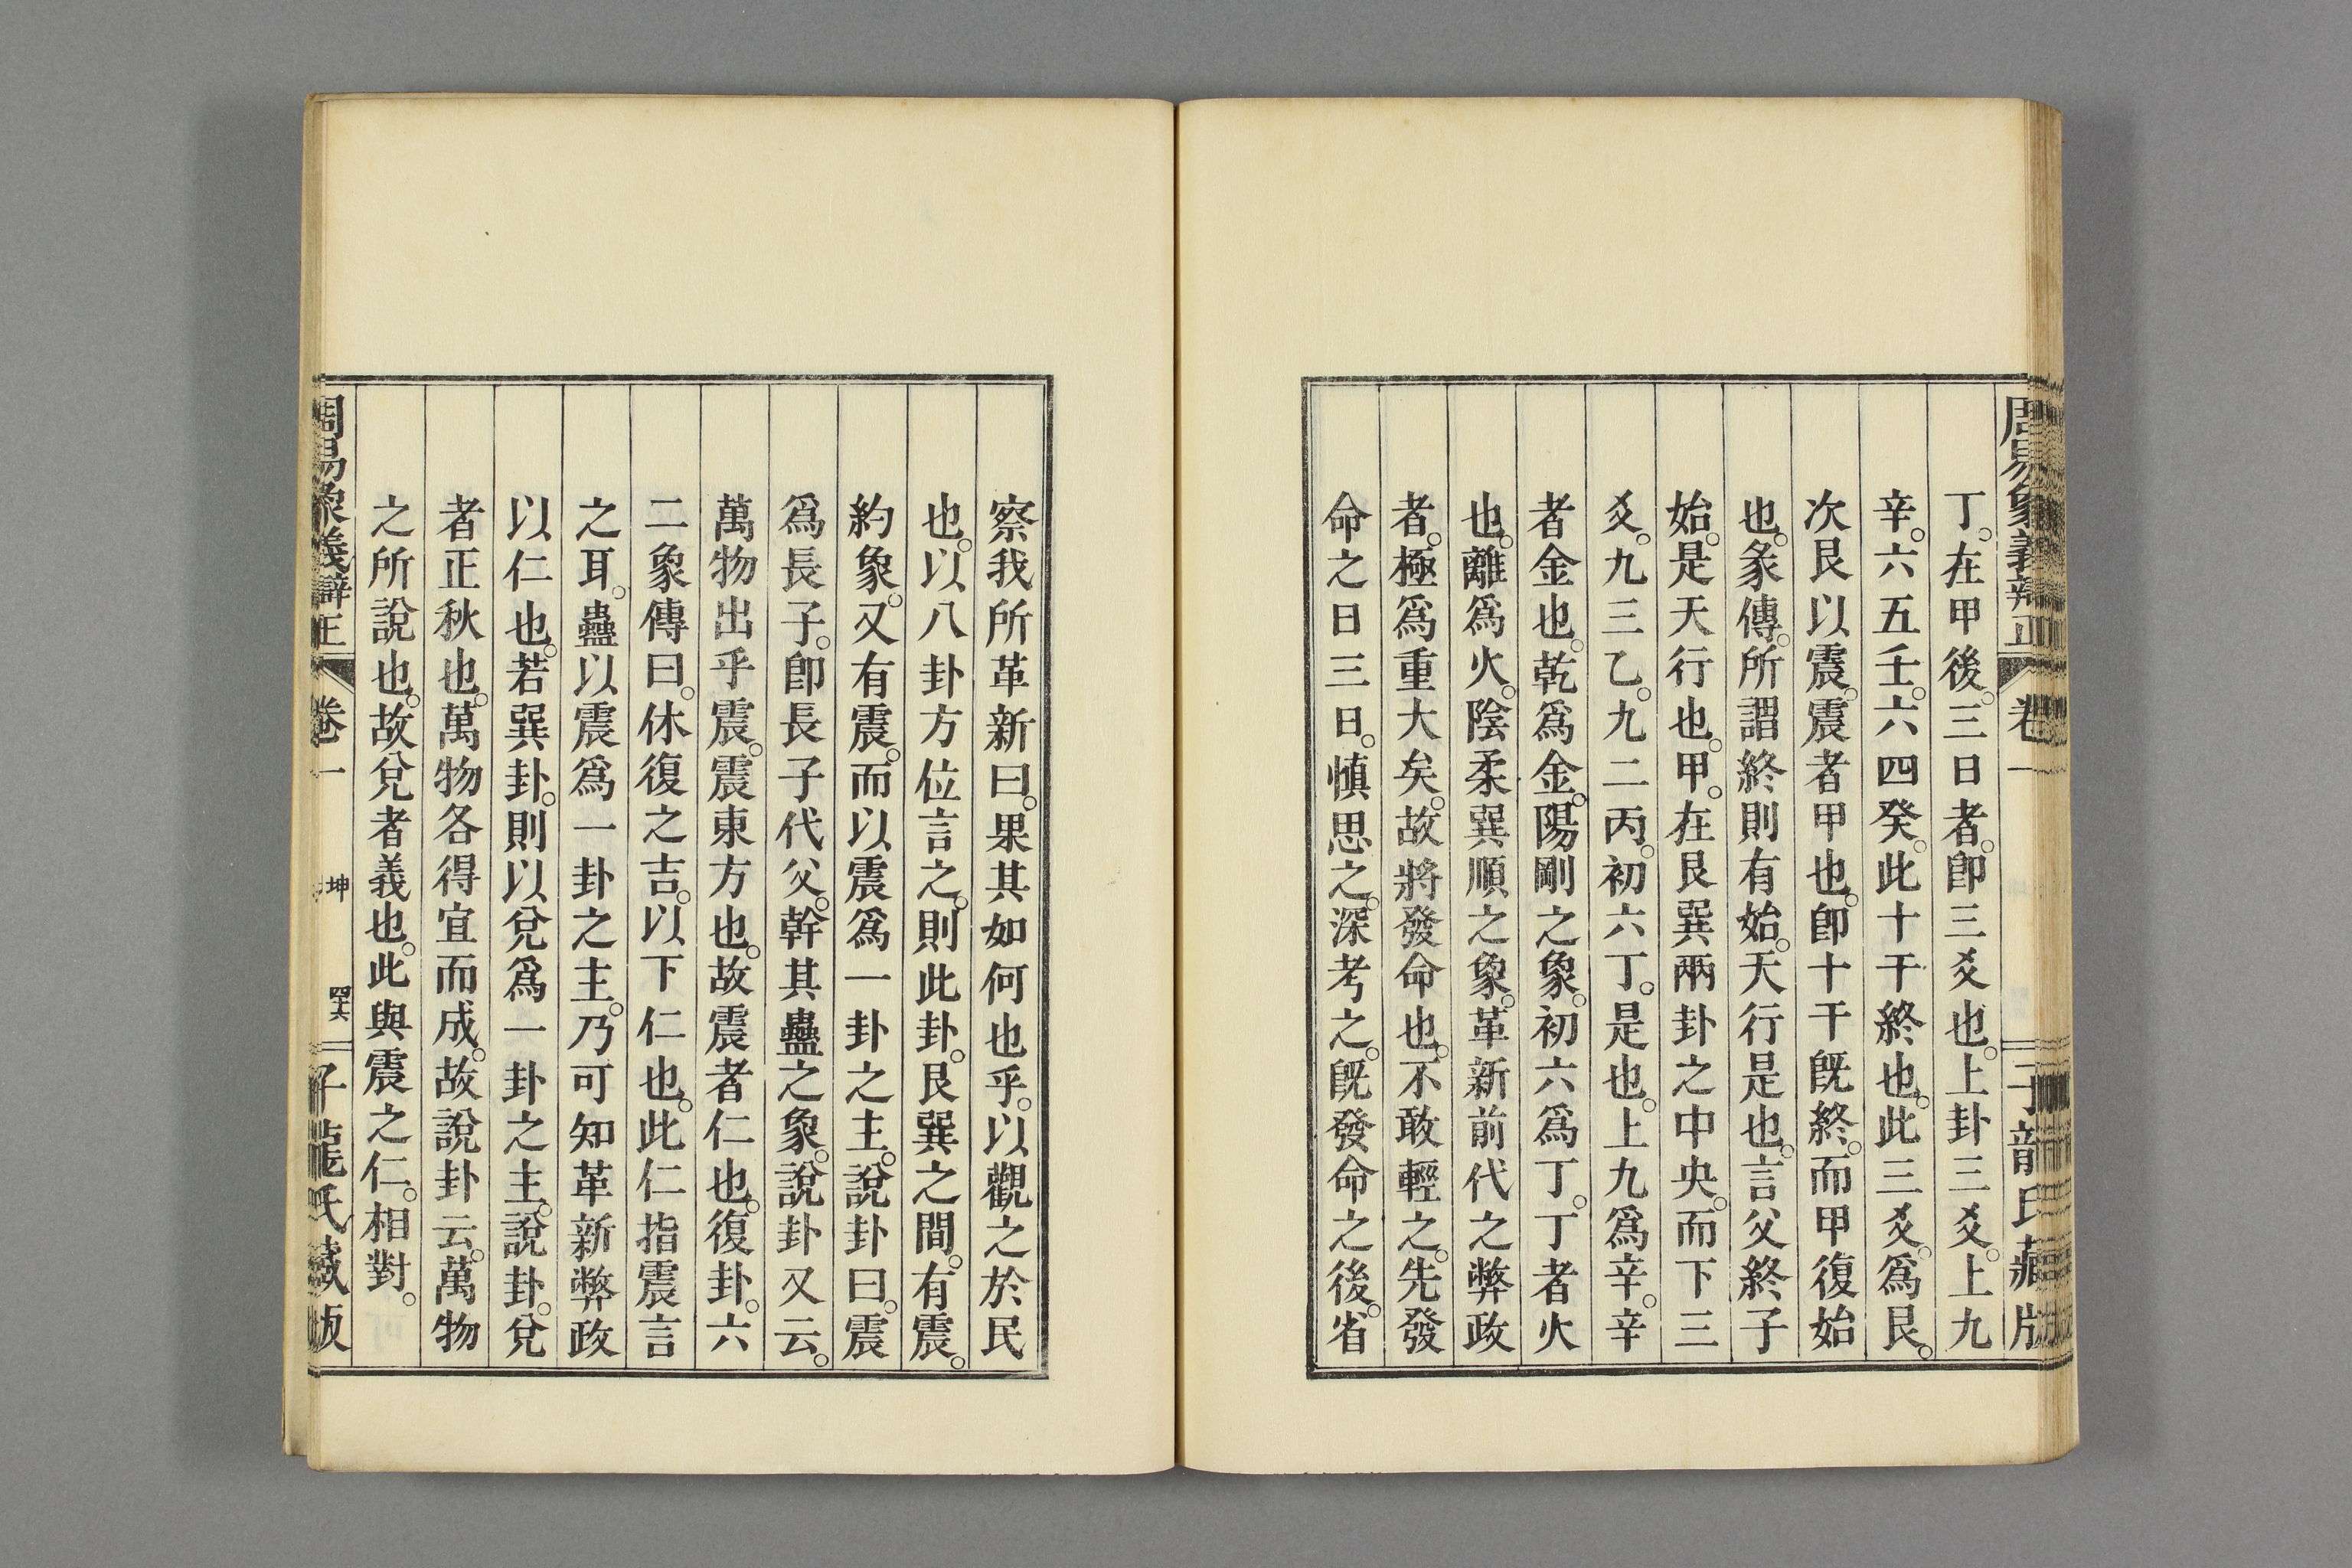 周易象義辯正 卷一 子龍氏藏版
丁。在甲後。三日者。卽三爻也。上卦三爻。上九
辛。六五壬。六四癸。此十干終也。此三爻。爲艮。
次艮以震。震者甲也。卽十干旣終。而甲復始
也。彖傳。所謂終則有始。天行是也。言父終子
始。是天行也。甲。在艮巽兩卦之中央。而下三
爻。九三乙。九二丙。初六丁。是也。上九爲辛。辛
者金也。乾爲金。陽剛之象。初六爲丁。丁者火
也。離爲火。陰柔巽順之象。革新前代之弊政
者。極爲重大矣。故將發命也。不敢輕之。先發
命之日三日。愼思之。深考之。旣發命之後。省
察我所革新曰。果其如何也乎。以觀之於民
也。以八卦方位言之。則此卦。艮巽之間。有震。
約象。又有震。而以震爲一卦之主。說卦曰。震
爲長子。卽長子代父。幹其蠱之象。說卦又云。
萬物出乎震。震東方也。故震者仁也。復卦。六
二象傳曰。休復之吉。以下仁也。此仁指震言
之耳。蠱以震爲一卦之主。乃可知革新弊政
以仁也。若巽卦。則以兌爲一卦之主。說卦。兌
者正秋也。萬物各得宜而成。故說卦云。萬物
之所說也。故兌者義也。此與震之仁。相對。
周易象義辯正 卷一 坤 四十六 子龍氏藏版